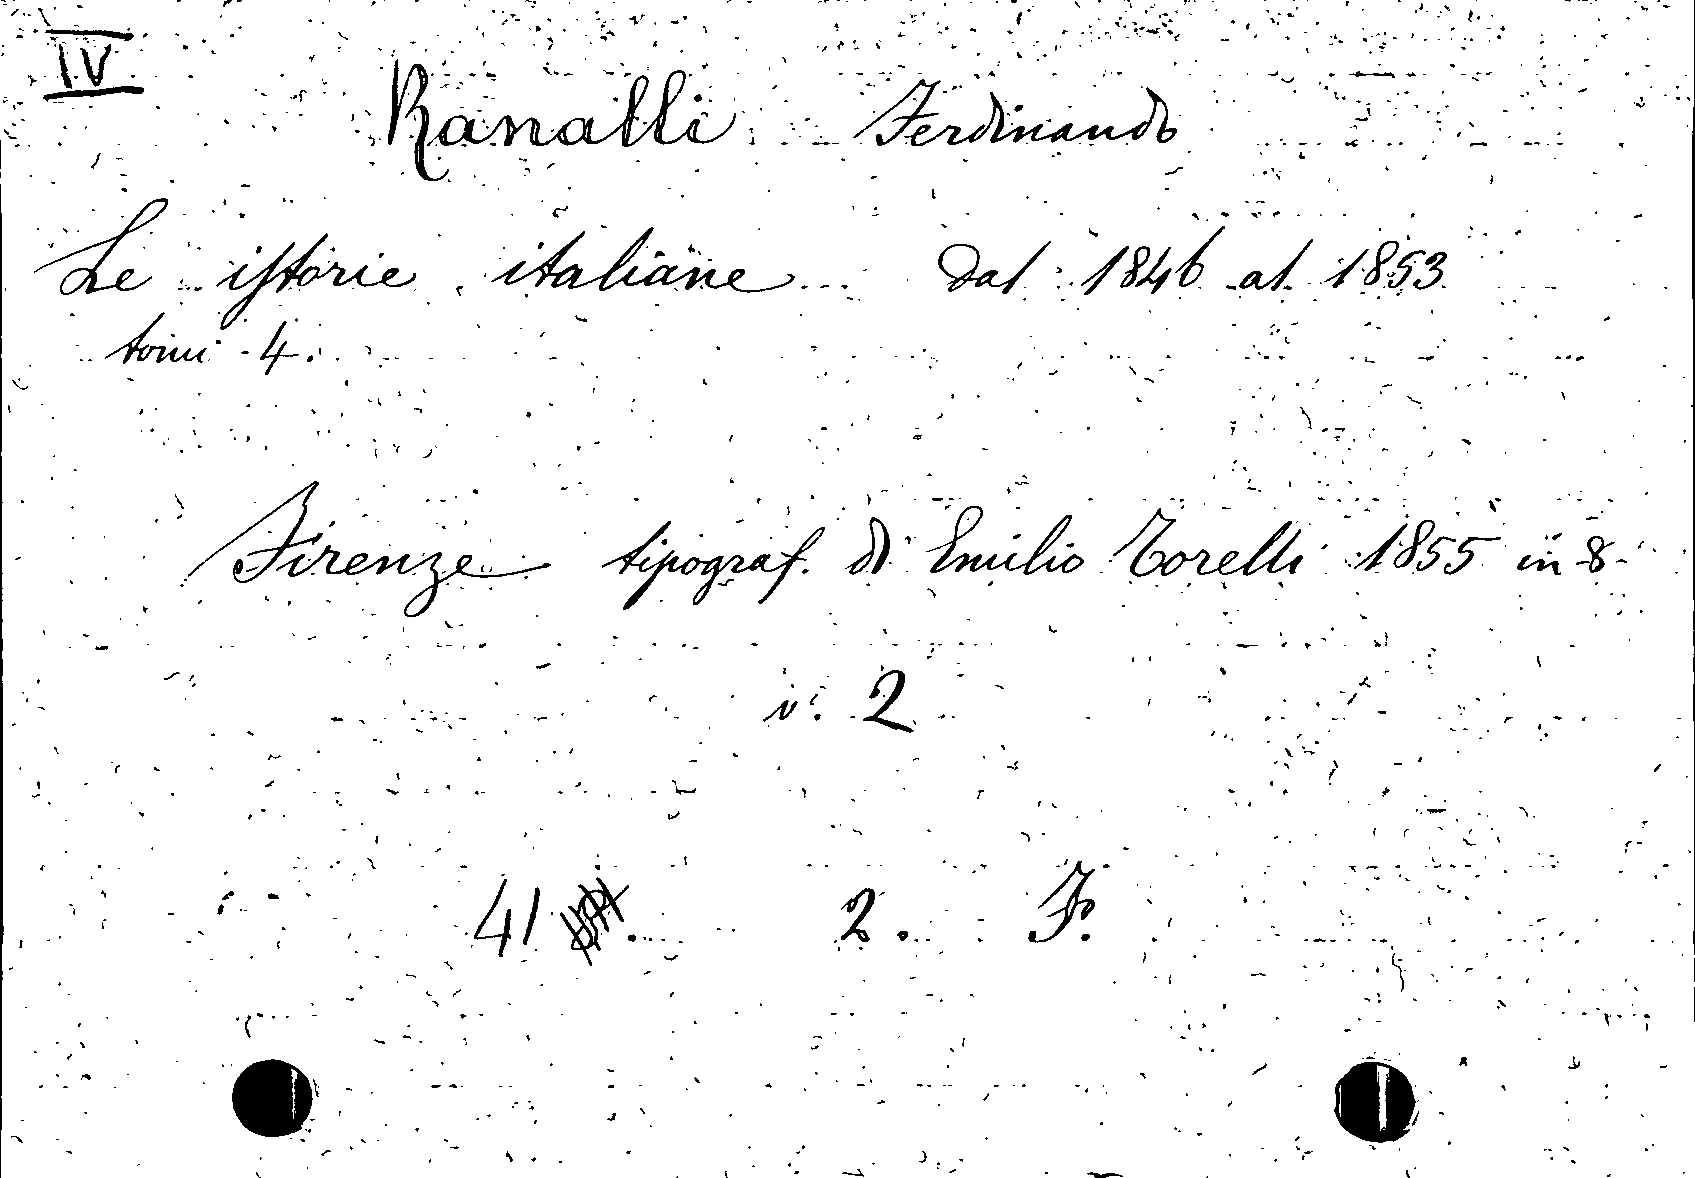 IV
Ranalli Ferdinando
Le istorie italiane dal 1846 al 1853
tomi 4.
Firenze tipograf. di Emilio Torelli 1855 in 8-
v. 2
41 . 2. F.